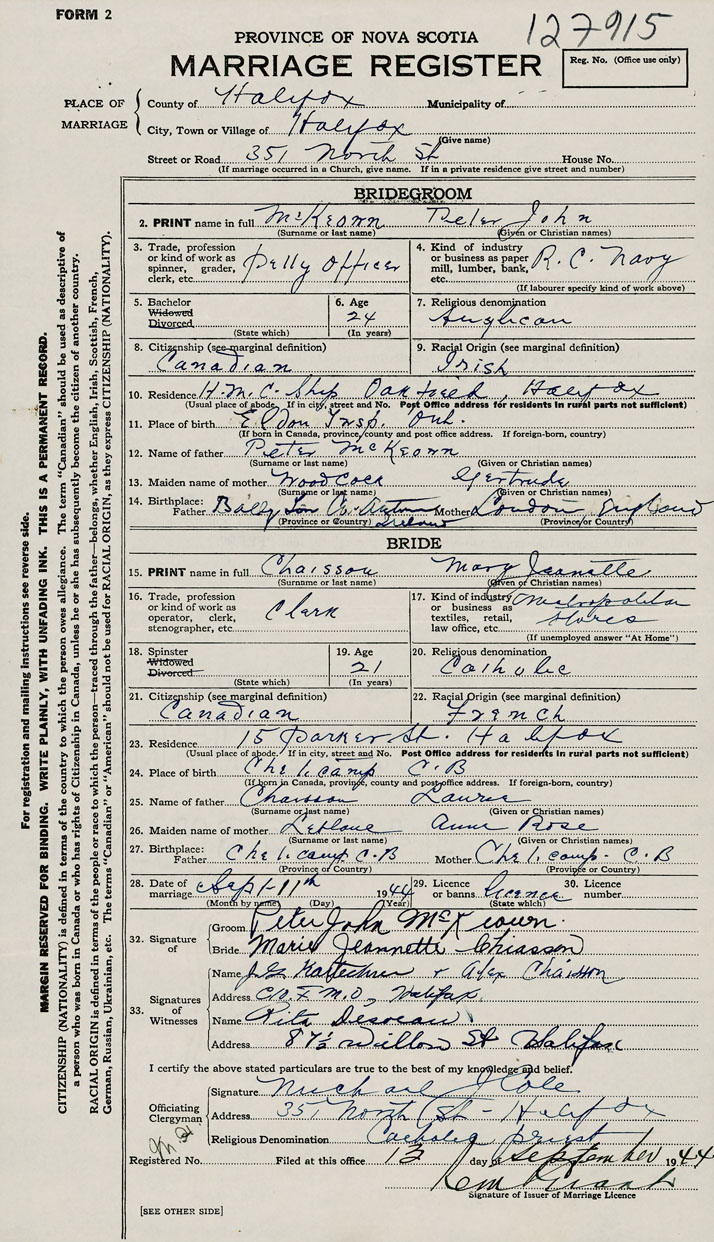 FORM 2
127915
PROVINCE OF NOVA SCOTIA
MARRIAGE REGISTER
Reg. No. (Office use only)
PLACE OF MARRIAGE
County of Halifax Municipality of
City, Town or Village of Halifax
(Give name)
Street or Road 351 North St House No.
(If marriage occurred in a Church, give name. If in a private residence give street and number)
BRIDEGROOM
2. PRINT name in full McKeown Peter John
(Surname or last name) (Given or Christian names)
3. Trade, profession or kind of work as spinner, grader, clerk, etc. Petty Officer
4. Kind of industry or business as paper mill, lumber, bank, etc. R. C. Navy
(If labourer specify kind of work above)
5. Bachelor Widowed Divorced (State which)
6. Age 24 (In years)
7. Religious denomination Anglican
8. Citizenship (see marginal definition) Canadian
9. Racial Origin (see marginal definition) Irish
10. Residence H.M.C. Ship Oakfield, Halifax
(Usual place of abode. If in city, street and No. Post Office address for residents in rural parts not sufficient)
11. Place of birth Eldon Insp. Ont.
(If born in Canada, province, county and post office address. If foreign-born, country)
12. Name of father Peter McKeown
(Surname or last name) (Given or Christian names)
13. Maiden name of mother Woodcock Gertrude
(Surname or last name) (Given or Christian names)
14. Birthplace: Father Co. Antrim Ireland Mother London, England
(Province or Country) (Province or Country)
BRIDE
15. PRINT name in full Chaisson Mary Jeanette
(Given or Christian names)
16. Trade, profession or kind of work as operator, clerk, stenographer, etc. Clerk
17. Kind of industry or business as textiles, retail, law office, etc. Metropolitan Stores
(If unemployed answer "At Home")
18. Spinster Widowed Divorced (State which)
19. Age 21 (In years)
20. Religious denomination Catholic
21. Citizenship (see marginal definition) Canadian
22. Racial Origin (see marginal definition) French
23. Residence 15 Parker St. Halifax
(Usual place of abode. If in city, street and No. Post Office address for residents in rural parts not sufficient)
24. Place of birth Cheticamp C.B
(If born in Canada, province, county and post office address. If foreign-born, country)
25. Name of father Chaisson
(Surname or last name) (Given or Christian names)
26. Maiden name of mother Anne Rose
(Surname or last name) (Given or Christian names)
27. Birthplace: Father Cheticamp C.B Mother Cheticamp - C.B
(Province or Country) (Province or Country)
28. Date of marriage Sept 11th 1944
(Month by name) (Day) (Year)
29. Licence or banns licence (State which)
30. Licence number
32. Signature of
Groom Peter John McKeown.
Bride Marie Jeannette Chiasson
33. Signatures of Witnesses
Name & Alex Chaisson
Address Halifax
Name Rita
Address 87½ Willow St Halifax
I certify the above stated particulars are true to the best of my knowledge and belief.
Officiating Clergyman
Signature Michael J Cole
Address 351 North St - Halifax
Religious Denomination Catholic priest
Registered No. Filed at this office 12 day of September 1944
Signature of Issuer of Marriage Licence
[SEE OTHER SIDE]
For registration and mailing instructions see reverse side.
MARGIN RESERVED FOR BINDING. WRITE PLAINLY, WITH UNFADING INK. THIS IS A PERMANENT RECORD.
CITIZENSHIP (NATIONALITY) is defined in terms of the country to which the person owes allegiance. The term "Canadian" should be used as descriptive of
a person who was born in Canada or who has rights of Citizenship in Canada, unless he or she has subsequently become the citizen of another country.
RACIAL ORIGIN is defined in terms of the people or race to which the person—traced through the father—belongs, whether English, Irish, Scottish, French,
German, Russian, Ukrainian, etc. The terms "Canadian" or "American" should not be used for RACIAL ORIGIN, as they express CITIZENSHIP (NATIONALITY).